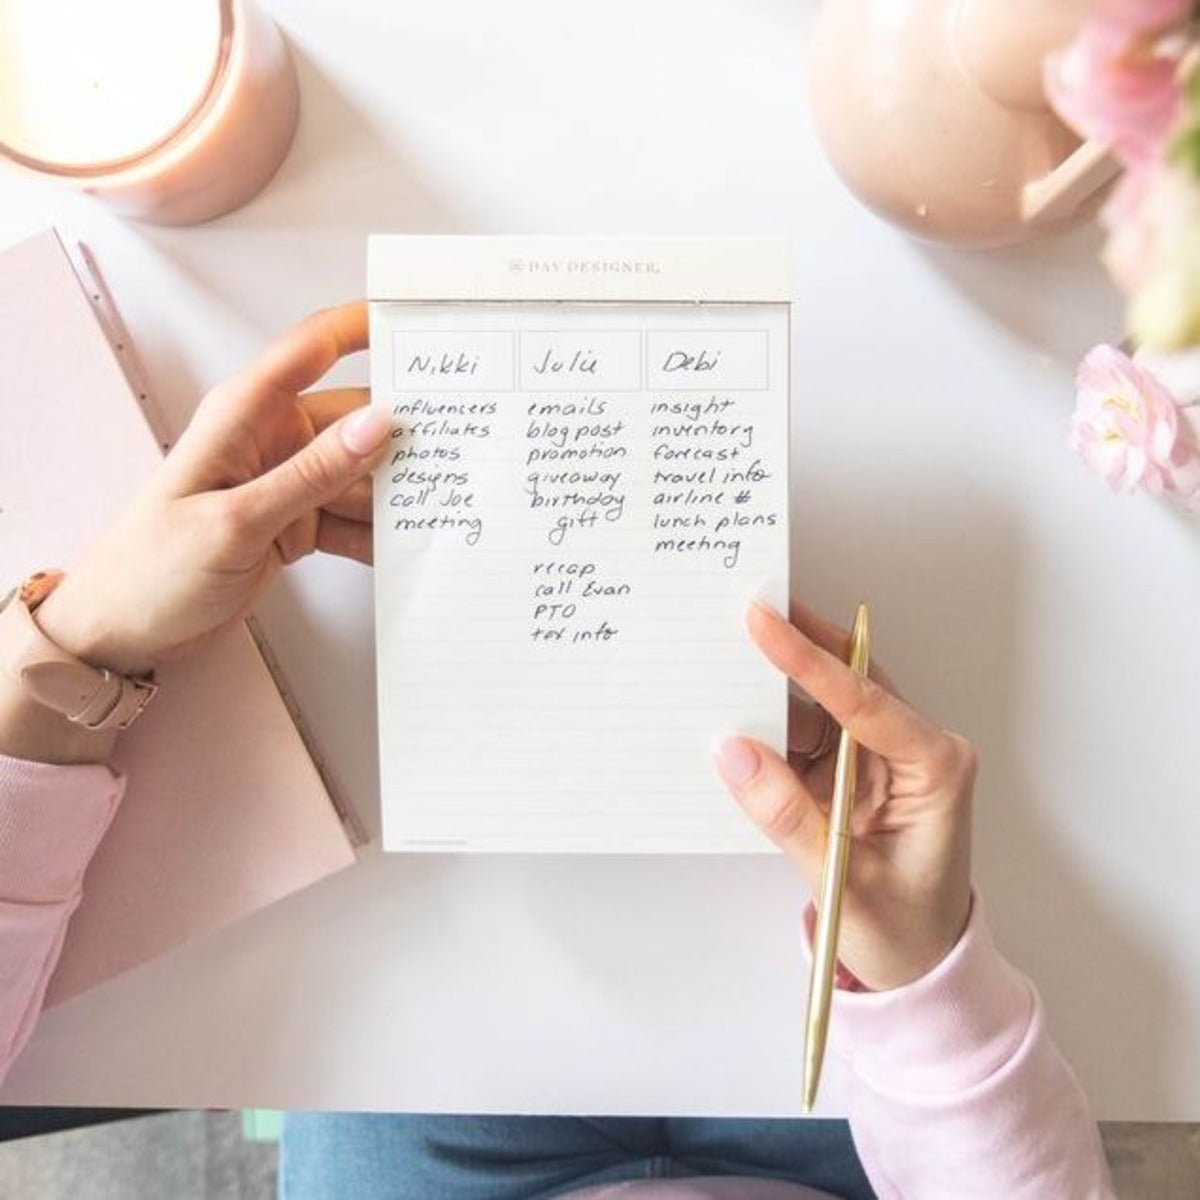 DAY DESIGNER
Nikki
influencers
affiliates
photos
designs
call Joe
meeting
Julie
emails
blog post
promotion
giveaway
birthday
gift
recap
call Evan
PTO
tax info
Debi
insight
inventory
forecast
travel info
airline #
lunch plans
meeting